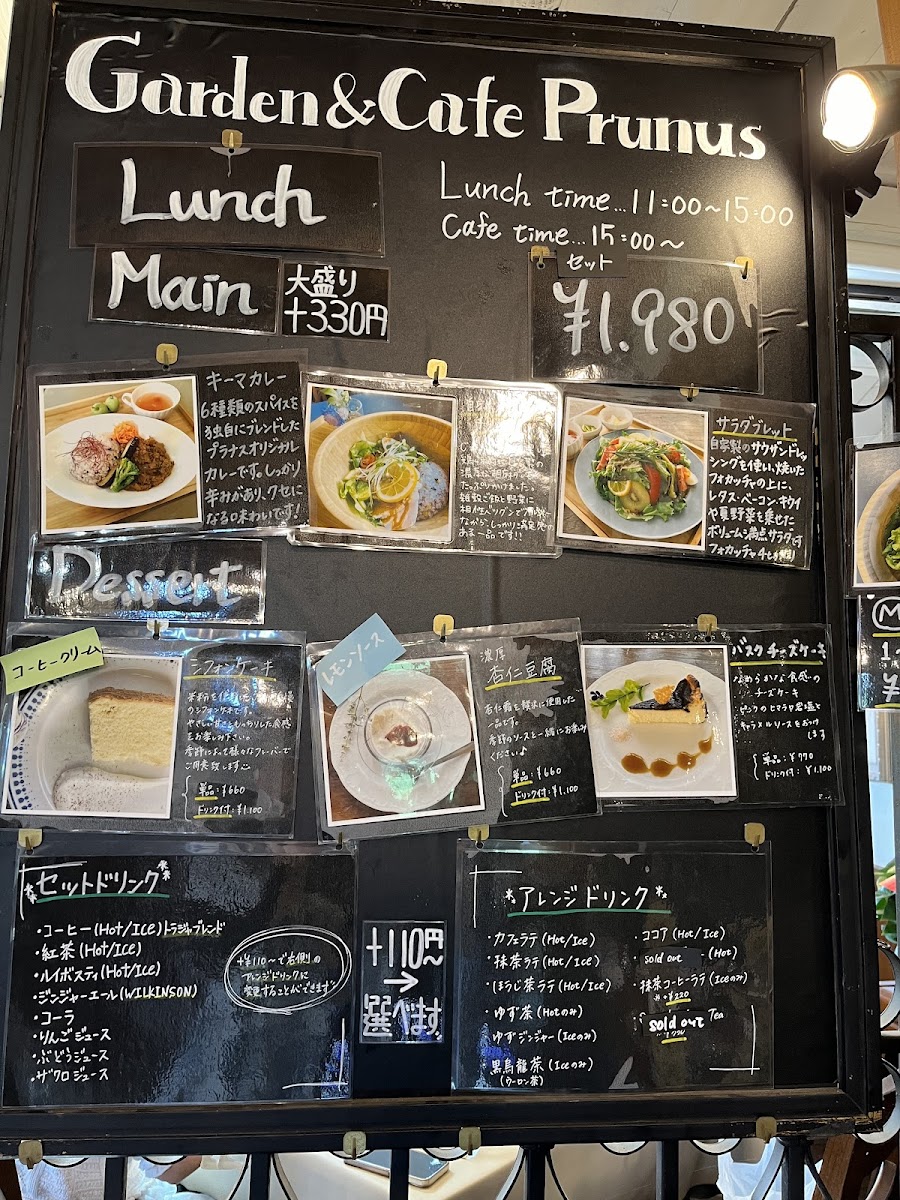 Garden&Cafe Prunus
Lunch
Lunch time... 11:00~15:00
Cafe time... 15:00~
Main
大盛り
+330円
セット
¥1.980
キーマカレー
6種類のスパイスを
独自にブレンドした
プラナスオリジナル
カレーです。しっかり
辛みがあり、クセに
なる味わいです!
たっぷりかけました。
雑穀ご飯と野菜に
サラダプレート
自家製のサウザンドレッ
シングを使い、焼いた
フォカッチャの上に、
レタス・ベーコン・キウイ
や夏野菜を乗せた
ボリューム満点サラダです
Dessert
コーヒークリーム
シフォンケーキ
やさしい甘さともっちりした食感
をお楽しみ下さい。
季節によって様々なフレーバーで
ご用意致します
単品:¥660
ドリンク付:¥1.100
レモンソース
濃厚
杏仁豆腐
杏仁霜を贅沢に使用した
一品です。
季節のソースと一緒にお楽しみ
ください♪
単品:¥660
ドリンク付:¥1.100
バスクチーズケーキ
なめらかな食感の
チーズケーキ
ピンクのヒマラヤ岩塩と
キャラメルソースをおかけ
します
単品:¥770
ドリンク付:¥1.100
*セットドリンク*
・コーヒー(Hot/Ice)トラジャブレンド
・紅茶(Hot/Ice)
・ルイボスティ(Hot/Ice)
・ジンジャーエール(WILKINSON)
・コーラ
・りんごジュース
・ぶどうジュース
・ザクロジュース
+¥110-で右側の
アレンジドリンクに
変更することができます
+110円
→
選べます
*アレンジドリンク*
・カフェラテ(Hot/Ice)
・抹茶ラテ(Hot/Ice)
・ほうじ茶ラテ(Hot/Ice)
・ゆず茶(Hotのみ)
・ゆずジンジャー(Iceのみ)
・黒烏龍茶(Iceのみ)
(ウーロン茶)
・ココア(Hot/Ice)
・sold out (Hot)
・抹茶コーヒーラテ(Iceのみ)
※+¥220
sold out Tea